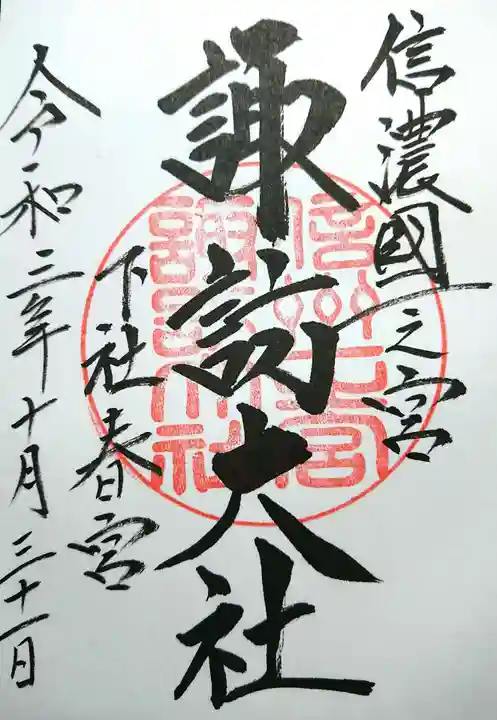 信濃國一之宮
諏訪大社
下社春宮
令和三年十月三十一日
信州一之宮
諏訪大社